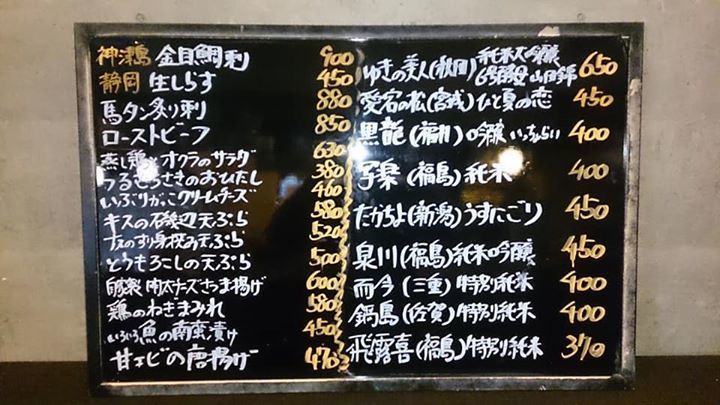 神津島 金目鯛刺 900
静岡 生しらす 450
馬タン炙り刺 880
ローストビーフ 850
蒸し鶏とオクラのサラダ 630
つるむらさきのおひたし 380
いぶりがっこクリームチーズ 460
キスの磯辺天ぷら 580
すり身挟み天ぷら 520
とうもろこしの天ぷら 500
自家製 肉太チーズさつま揚げ 600
鶏のねぎまみれ 580
いろいろ魚の南蛮漬け 450
甘エビの唐揚げ 470
ゆきの美人(秋田) 純米大吟醸 6号酵母 山田錦 650
愛宕の松(宮城)ひと夏の恋 450
黒龍(福井)吟醸 いっちょらい 400
写楽(福島)純米 400
たかちよ(新潟)うすにごり 450
泉川(福島)純米吟醸 450
而今(三重)特別純米 400
鍋島(佐賀)特別純米 400
飛露喜(福島)特別純米 370